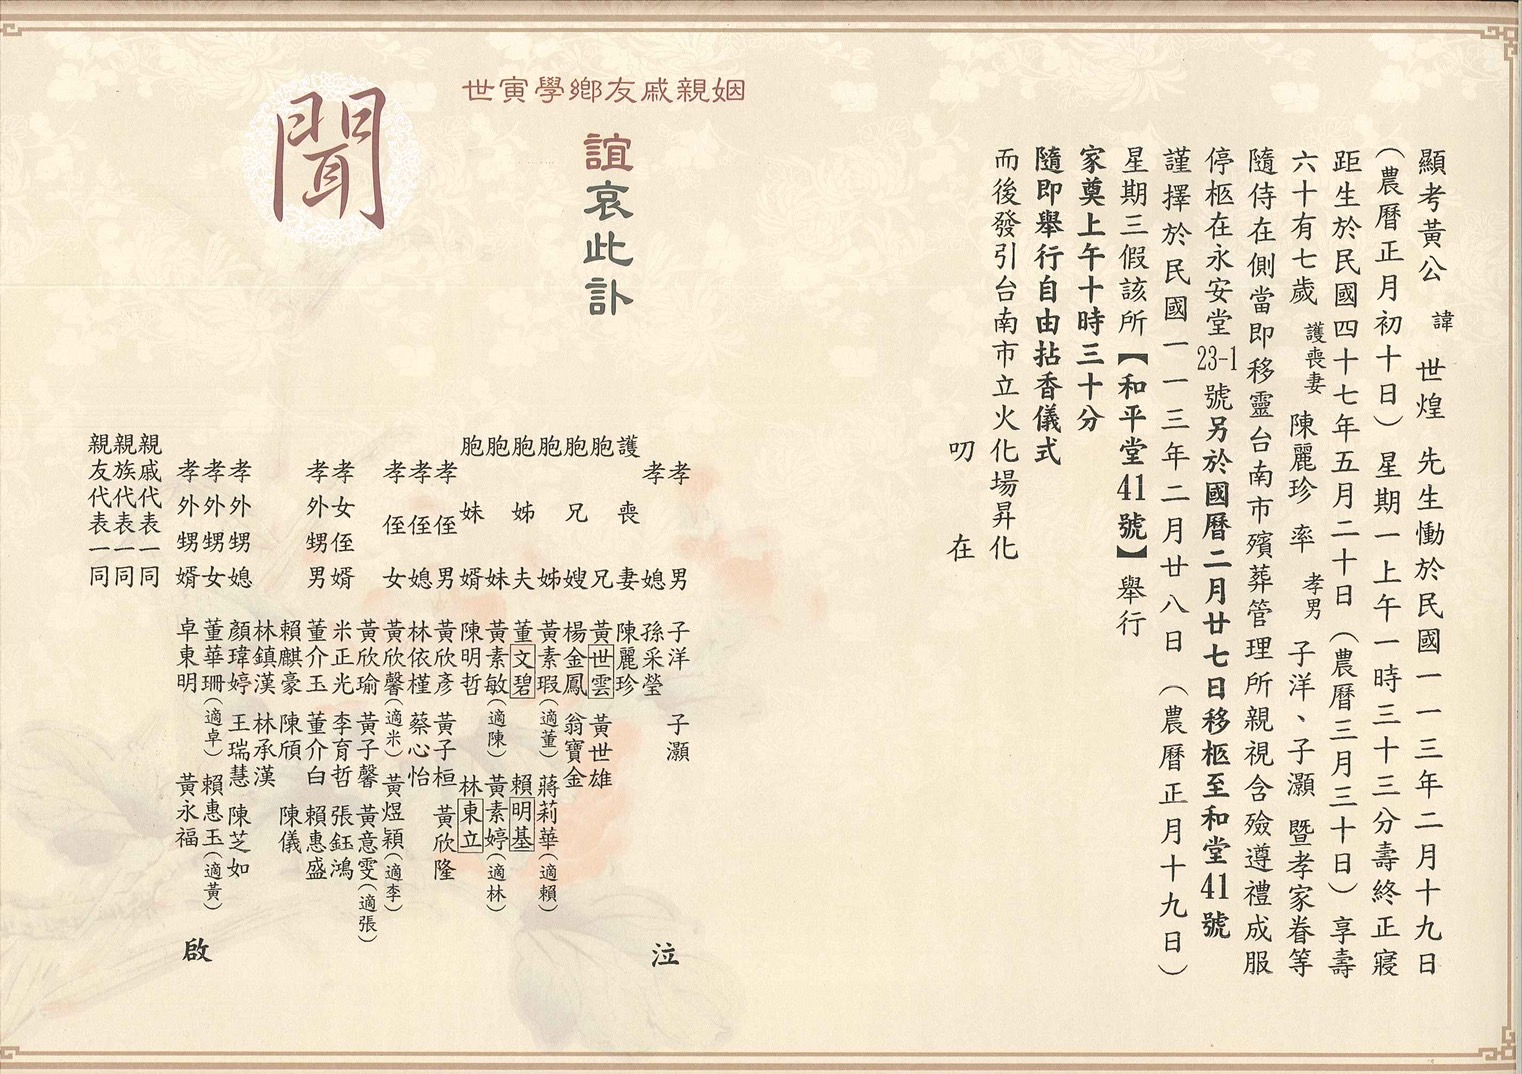 顯考黃公 諱 世煌 先生慟於民國一一三年二月十九日
（農曆正月初十日）星期一上午一時三十三分壽終正寢
距生於民國四十七年五月二十日（農曆三月三十日）享壽
六十有七歲 護喪妻 陳麗珍 率 孝男 子洋、子灝 暨孝家眷等
隨侍在側當即移靈台南市殯葬管理所親視含殮遵禮成服
停柩在永安堂23-1號另於國曆二月廿七日移柩至和堂41號
謹擇於民國一一三年二月廿八日（農曆正月十九日）
星期三假該所【和平堂41號】舉行
家奠上午十時三十分
隨即舉行自由拈香儀式
而後發引台南市立火化場昇化
叨 在
姻親戚友鄉學寅世
誼哀此訃
聞
孝男 子洋 子灝
孝媳 孫采瑩
護喪妻 陳麗珍
胞兄 黃世雲 黃世雄
胞兄嫂 楊金鳳 翁寶金
胞姊 黃素瑕（適董） 蔣莉華（適賴）
胞姊夫 董文碧 賴明基
胞妹 黃素敏（適陳） 黃素婷（適林）
胞妹婿 陳明哲 林東立
孝侄男 黃欣彥 黃子桓 黃欣隆
孝侄媳 林依槿 蔡心怡
孝侄女 黃欣馨（適米） 黃煜穎（適李）
黃欣瑜 黃子馨 黃意雯（適張）
孝女侄婿 米正光 李育哲 張鈺鴻
孝外甥男 董介玉 董介白 賴惠盛
賴麒豪 陳頎 陳儀
林鎮漢 林承漢
孝外甥媳 顏瑋婷 王瑞慧 陳芝如
孝外甥女 董華珊（適卓） 賴惠玉（適黃）
孝外甥婿 卓東明 黃永福
親戚代表一同
親族代表一同
親友代表一同
泣
啟